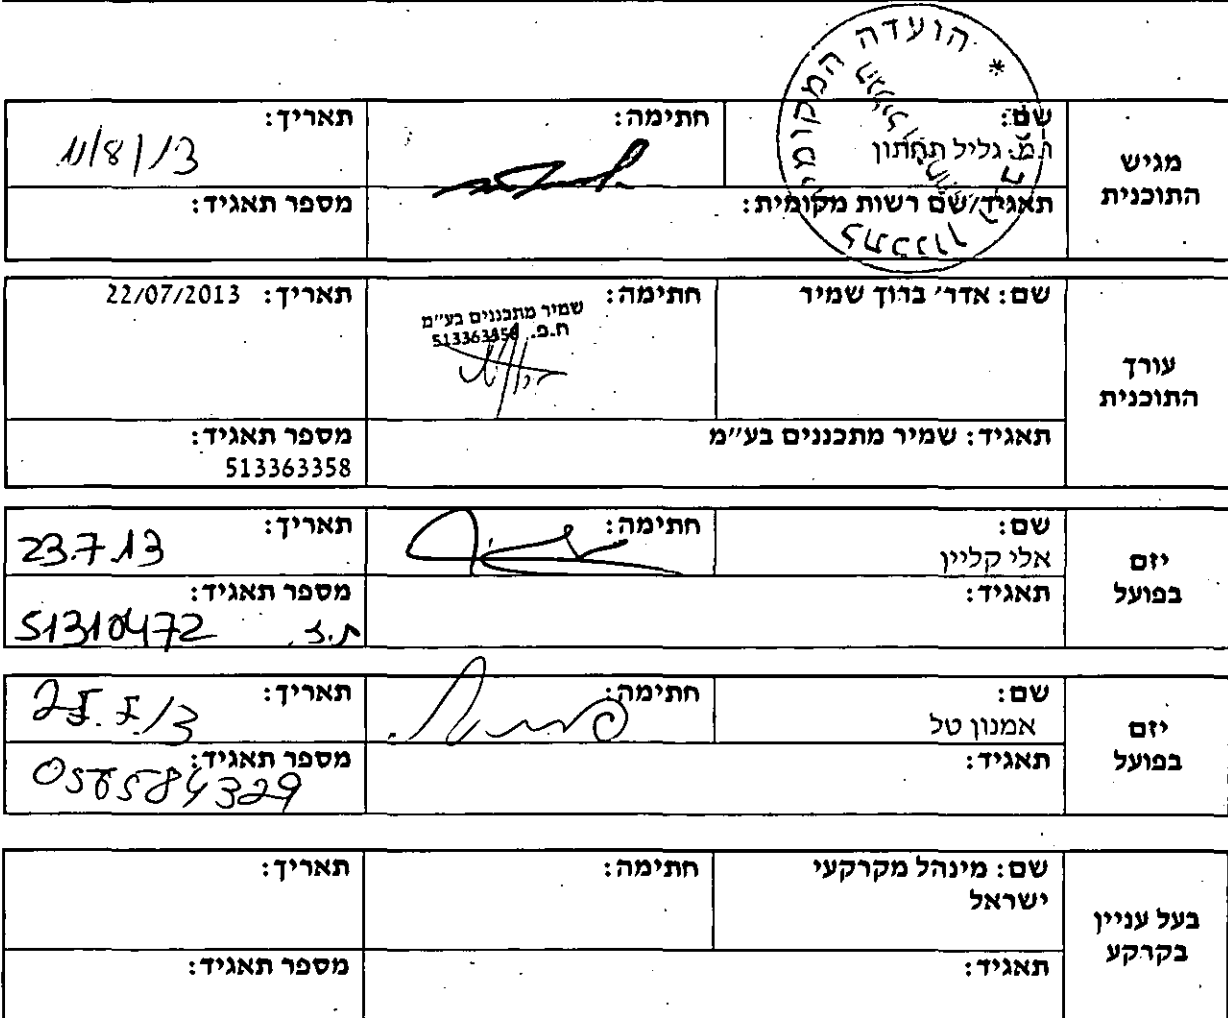 הועדה המקומית
מגיש התוכנית
שם:
ו.מ. גליל תחתון
חתימה:
תאריך: 11/8/13
תאגיד/שם רשות מקומית:
מספר תאגיד:
עורך התוכנית
שם: אדר' ברוך שמיר
חתימה:
שמיר מתכננים בע"מ
ח.פ. 513363358
תאריך: 22/07/2013
תאגיד: שמיר מתכננים בע"מ
מספר תאגיד:
513363358
יזם בפועל
שם:
אלי קליין
חתימה:
תאריך:
23.7.13
תאגיד:
מספר תאגיד:
ת.ז. 51310472
יזם בפועל
שם:
אמנון טל
חתימה:
תאריך:
תאגיד:
מספר תאגיד:
בעל עניין בקרקע
שם: מינהל מקרקעי
ישראל
חתימה:
תאריך:
תאגיד:
מספר תאגיד: